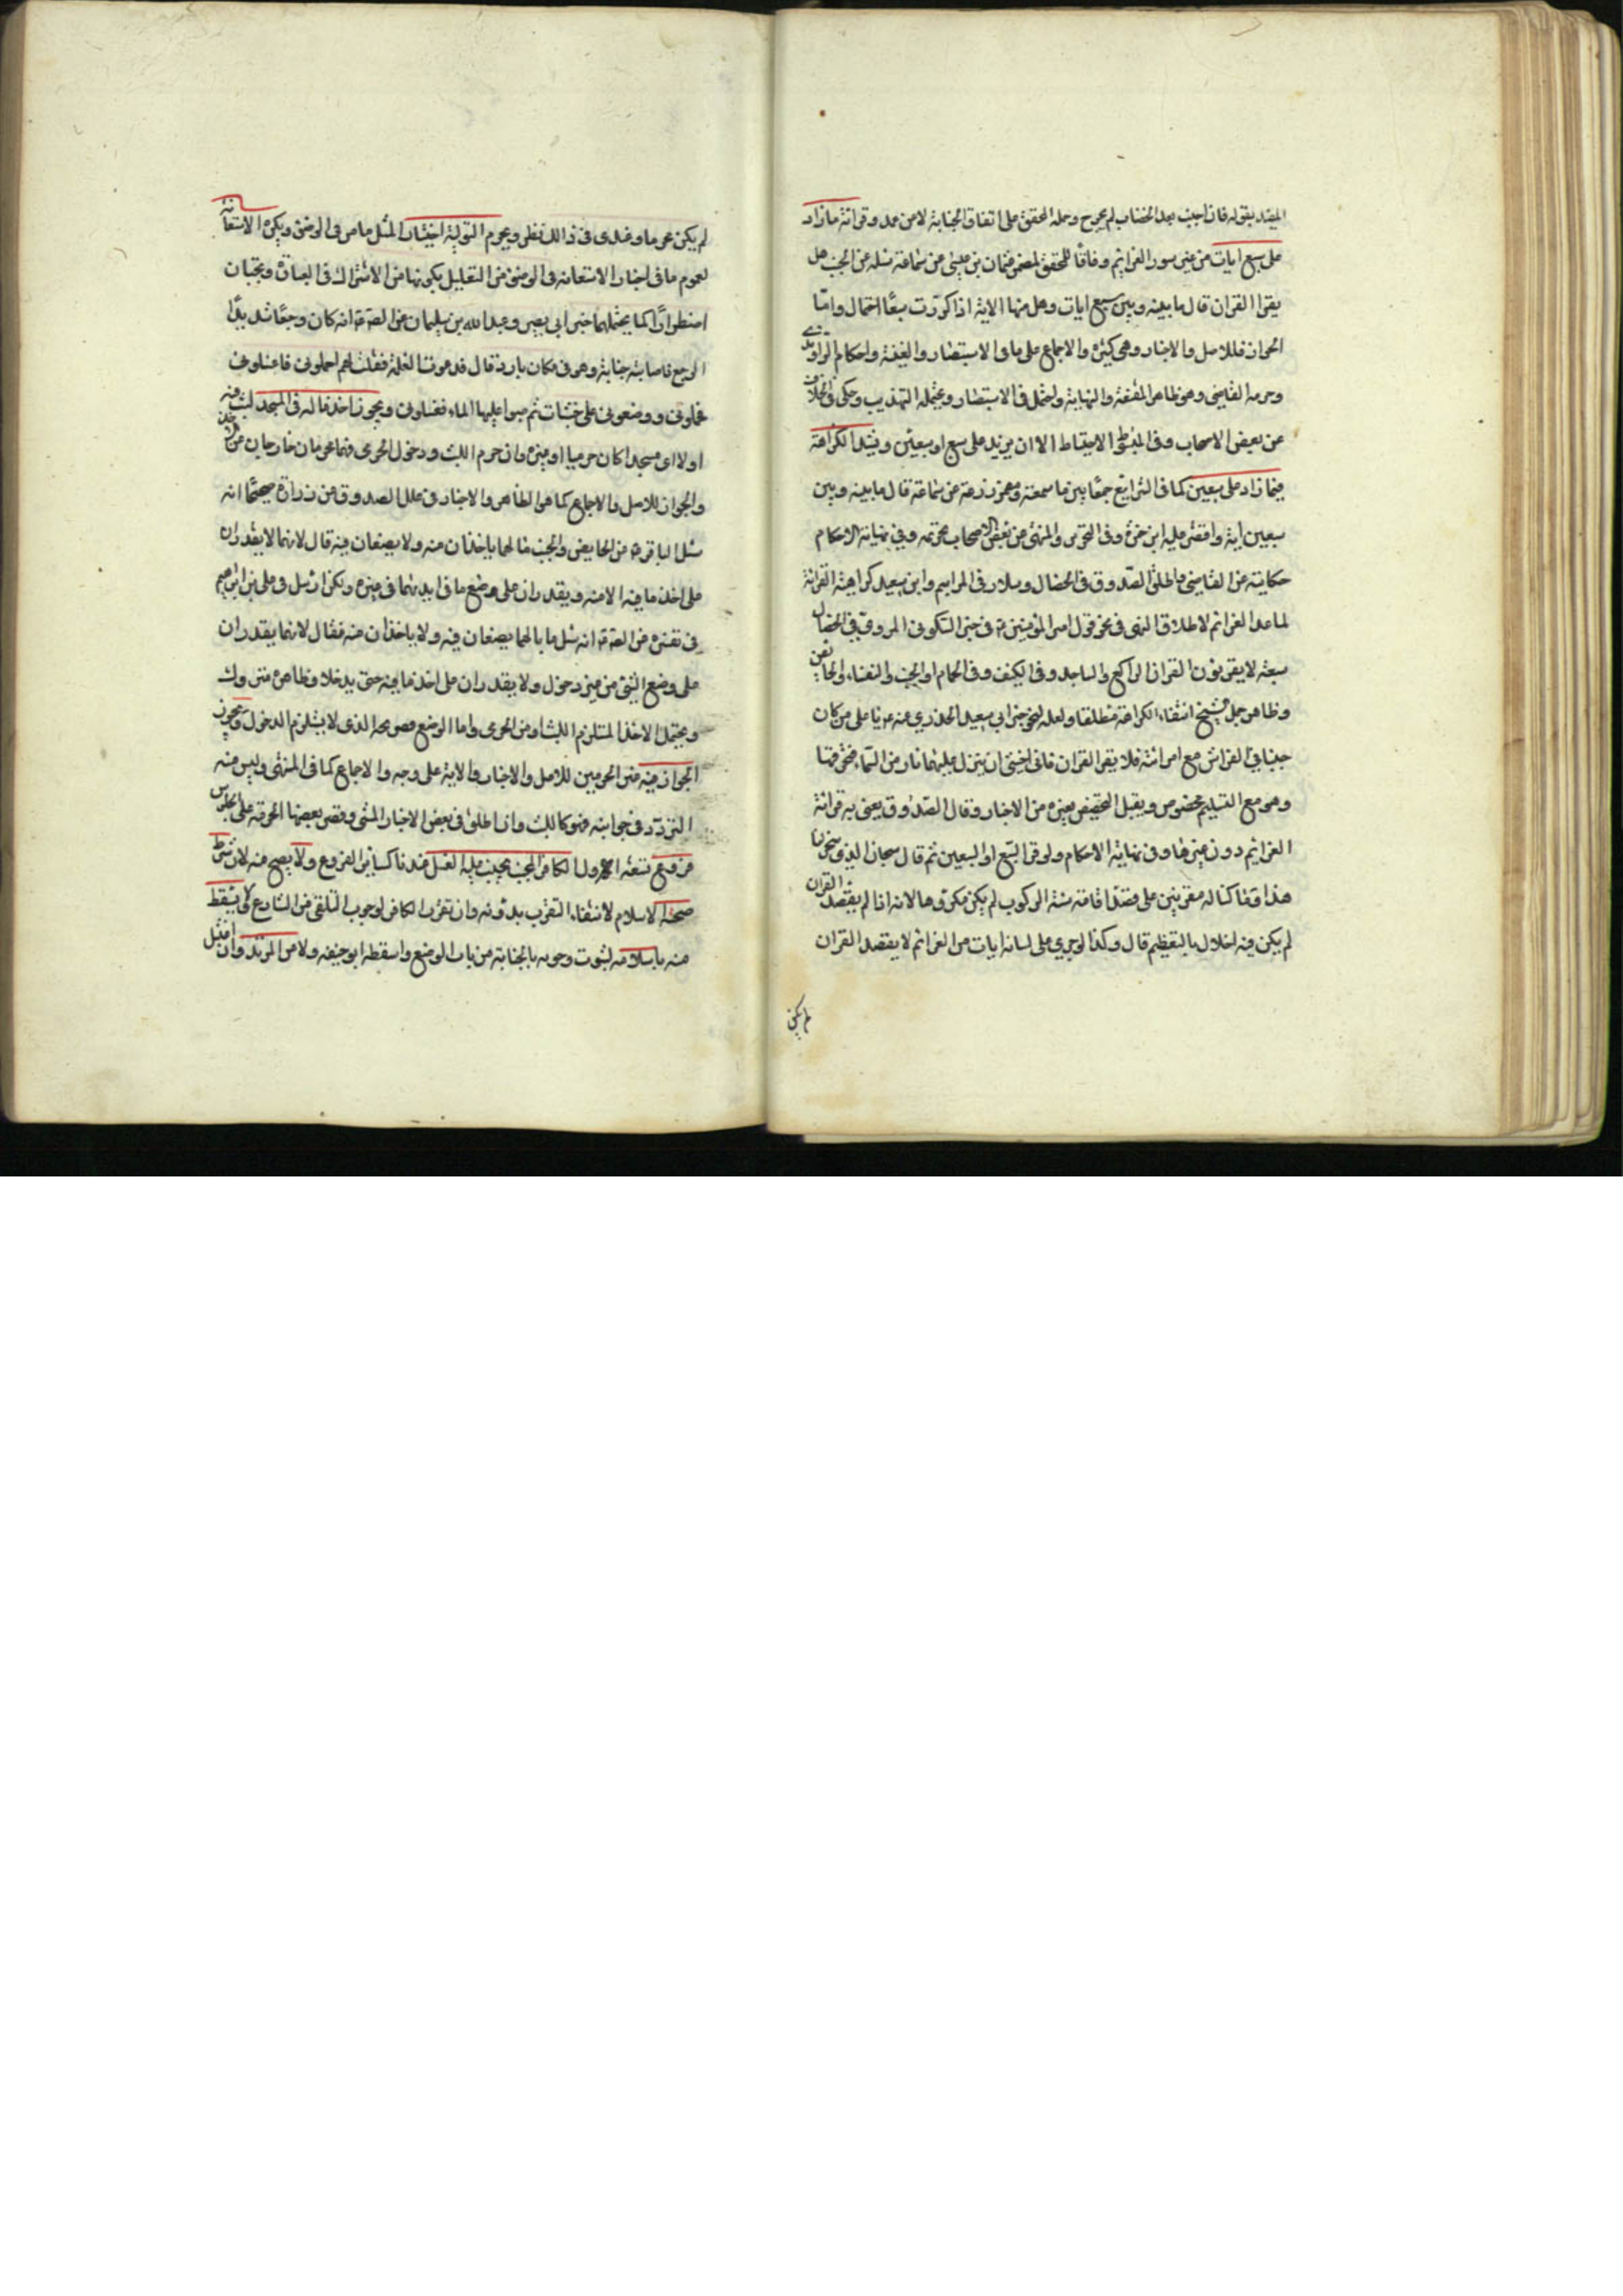 المفيد بقوله فان اجنب بعد الخضاب لم يحرج وحمله المحقق على اتفاق الجنابة لا من عمد وقرائة ما زاد
على سبع ايات من غير سور العزائم وفاقا للمحقق لمضمر عثمان بن عيسى عن سماعة سئله عن الجنب هل
يقرا القران قال ما بينه وبين سبع ايات وهل منها الاية اذا كررت سبعا احتمال واما
الجواز فللاصل والاخبار وهي كثيرة والاجماع على ما في الاستبصار والغنية واحكام الراوندي
وحرمه القاضي وهو ظاهر المقنعة والنهاية واحتمل في الاستبصار ويحتمله التهذيب وحكى في الخلاف
عن بعض الاصحاب وفي المبسوط الاحتياط الا ان يزيد على سبع او سبعين ويشتد الكراهة
فيما زاد على سبعين كما في الشرايع جمعا بين ما سمعته ومضمر زرعة عن سماعة قال ما بينه وبين
سبعين اية واقتصر عليه ابن حمزة وفي التحرير والمنتهى عن بعض الاصحاب تحريمه وفي نهاية الاحكام
حكايته عن القاضي واطلق الصدوق في الخصال وسلار في المراسم وابن سعيد كراهية القرائة
لما عدا العزائم لاطلاق النهى في نحو قول امير المؤمنين ع في خبر السكوني المروي في الخصال
سبعة لا يقرؤن القران الراكع والساجد وفي الكنيف وفي الحمام والجنب والنفساء والحائض
وظاهر جل انتفاء الكراهة مطلقا ولعله لنحو خبر ابي سعيد الخدري عنه من كان
جنبا في الفراش مع امراته فلا يقرا القران فاني اخشى ان ينزل عليهما نار من السماء فتحرقهما
وهو مع التسليم مخصوص ويقبل التخصيص بغيره من الاخبار وقال الصدوق يعني به قرائة
العزائم دون غيرها وفي نهاية الاحكام ولو قرا السبع او السبعين ثم قال سبحان الذي سخر لنا
هذا وما كنا له مقرنين على قصد اقامة سنة الركوب لم يكن مكروها لانه اذا لم يقصد القران
لم يكن فيه اخلال بالتعظيم قال وكذا لو جرى على لسانه ايات من العزائم لا يقصد القران
لم يكن
لم يكن محرما وعندى في ذلك نظر ويحرم التولية اختيارا لمثل ما مر في الوضوء ويكره الاستعانة
لعموم ما في اخبار الاستعانة في الوضوء من التعليل بكونها من الاشتراك في العبادة ويجبان
اضطرارا كما يحتملهما خبر ابي بصير وعبد الله بن سليمان عن الصادق ع انه كان وجعا شديد
الوجع فاصابته جنابة وهو في مكان بارد قال فدعوت الغلمة فقلت لهم احملوني فاغسلوني
فحملوني ووضعوني على خشبات ثم صبوا عليها الماء فغسلوني ويجوز اخذ ما له في المسجد لبث فيه
اولا اى مسجد كان حرميا او غيره وان حرم اللبث ودخول الحرمى فهما محرمان خارجان عن
والجواز للاصل والاجماع كما هو الظاهر والاخبار في علل الصدوق عن زرارة صحيحا انه
سئل الباقر ع عن الحايض والجنب ما لهما ياخذان منه ولا يضعان فيه قال لانهما لا يقدران
على اخذ ما فيه الا منه ويقدران على وضع ما في ايديهما في غيره ولكن ارسل في على بن ابراهيم
في تفسيره عن الصادق ع انه سئل ما بالهما يضعان فيه ولا ياخذان منه فقال لانهما يقدران
على وضع الشئ من غير دخول ولا يقدران على اخذ ما فيه حتى يدخلا وظاهره
ويحتمل الاخذ المستلزم اللبث او من الحرمى واما الوضع فصريحه الذى لا يستلزم الدخول ويجوز
الجواز فيه غير الحرمين للاصل والاخبار والاية على وجه والاجماع كما في المنتهى وليس منه
التردد في جوانبه فهو كاللبث وان اطلق في بعض الاخبار المشى وقصر بعضها الحرمة على الجلوس
فروع تسعة الاول الكافر الجنب يجب عليه الغسل عندنا كساير الفروع ولا يصح منه لان شرط
صحته الاسلام لانتفاء التقرب بدونه وان تقرب الكافر لوجوب التلقى من الشارع ولا يسقط
منه باسلامه لثبوت وجوبه بالجنابة من باب الوضع واسقطه ابو حنيفه ولا من المرتد وان اغتسل